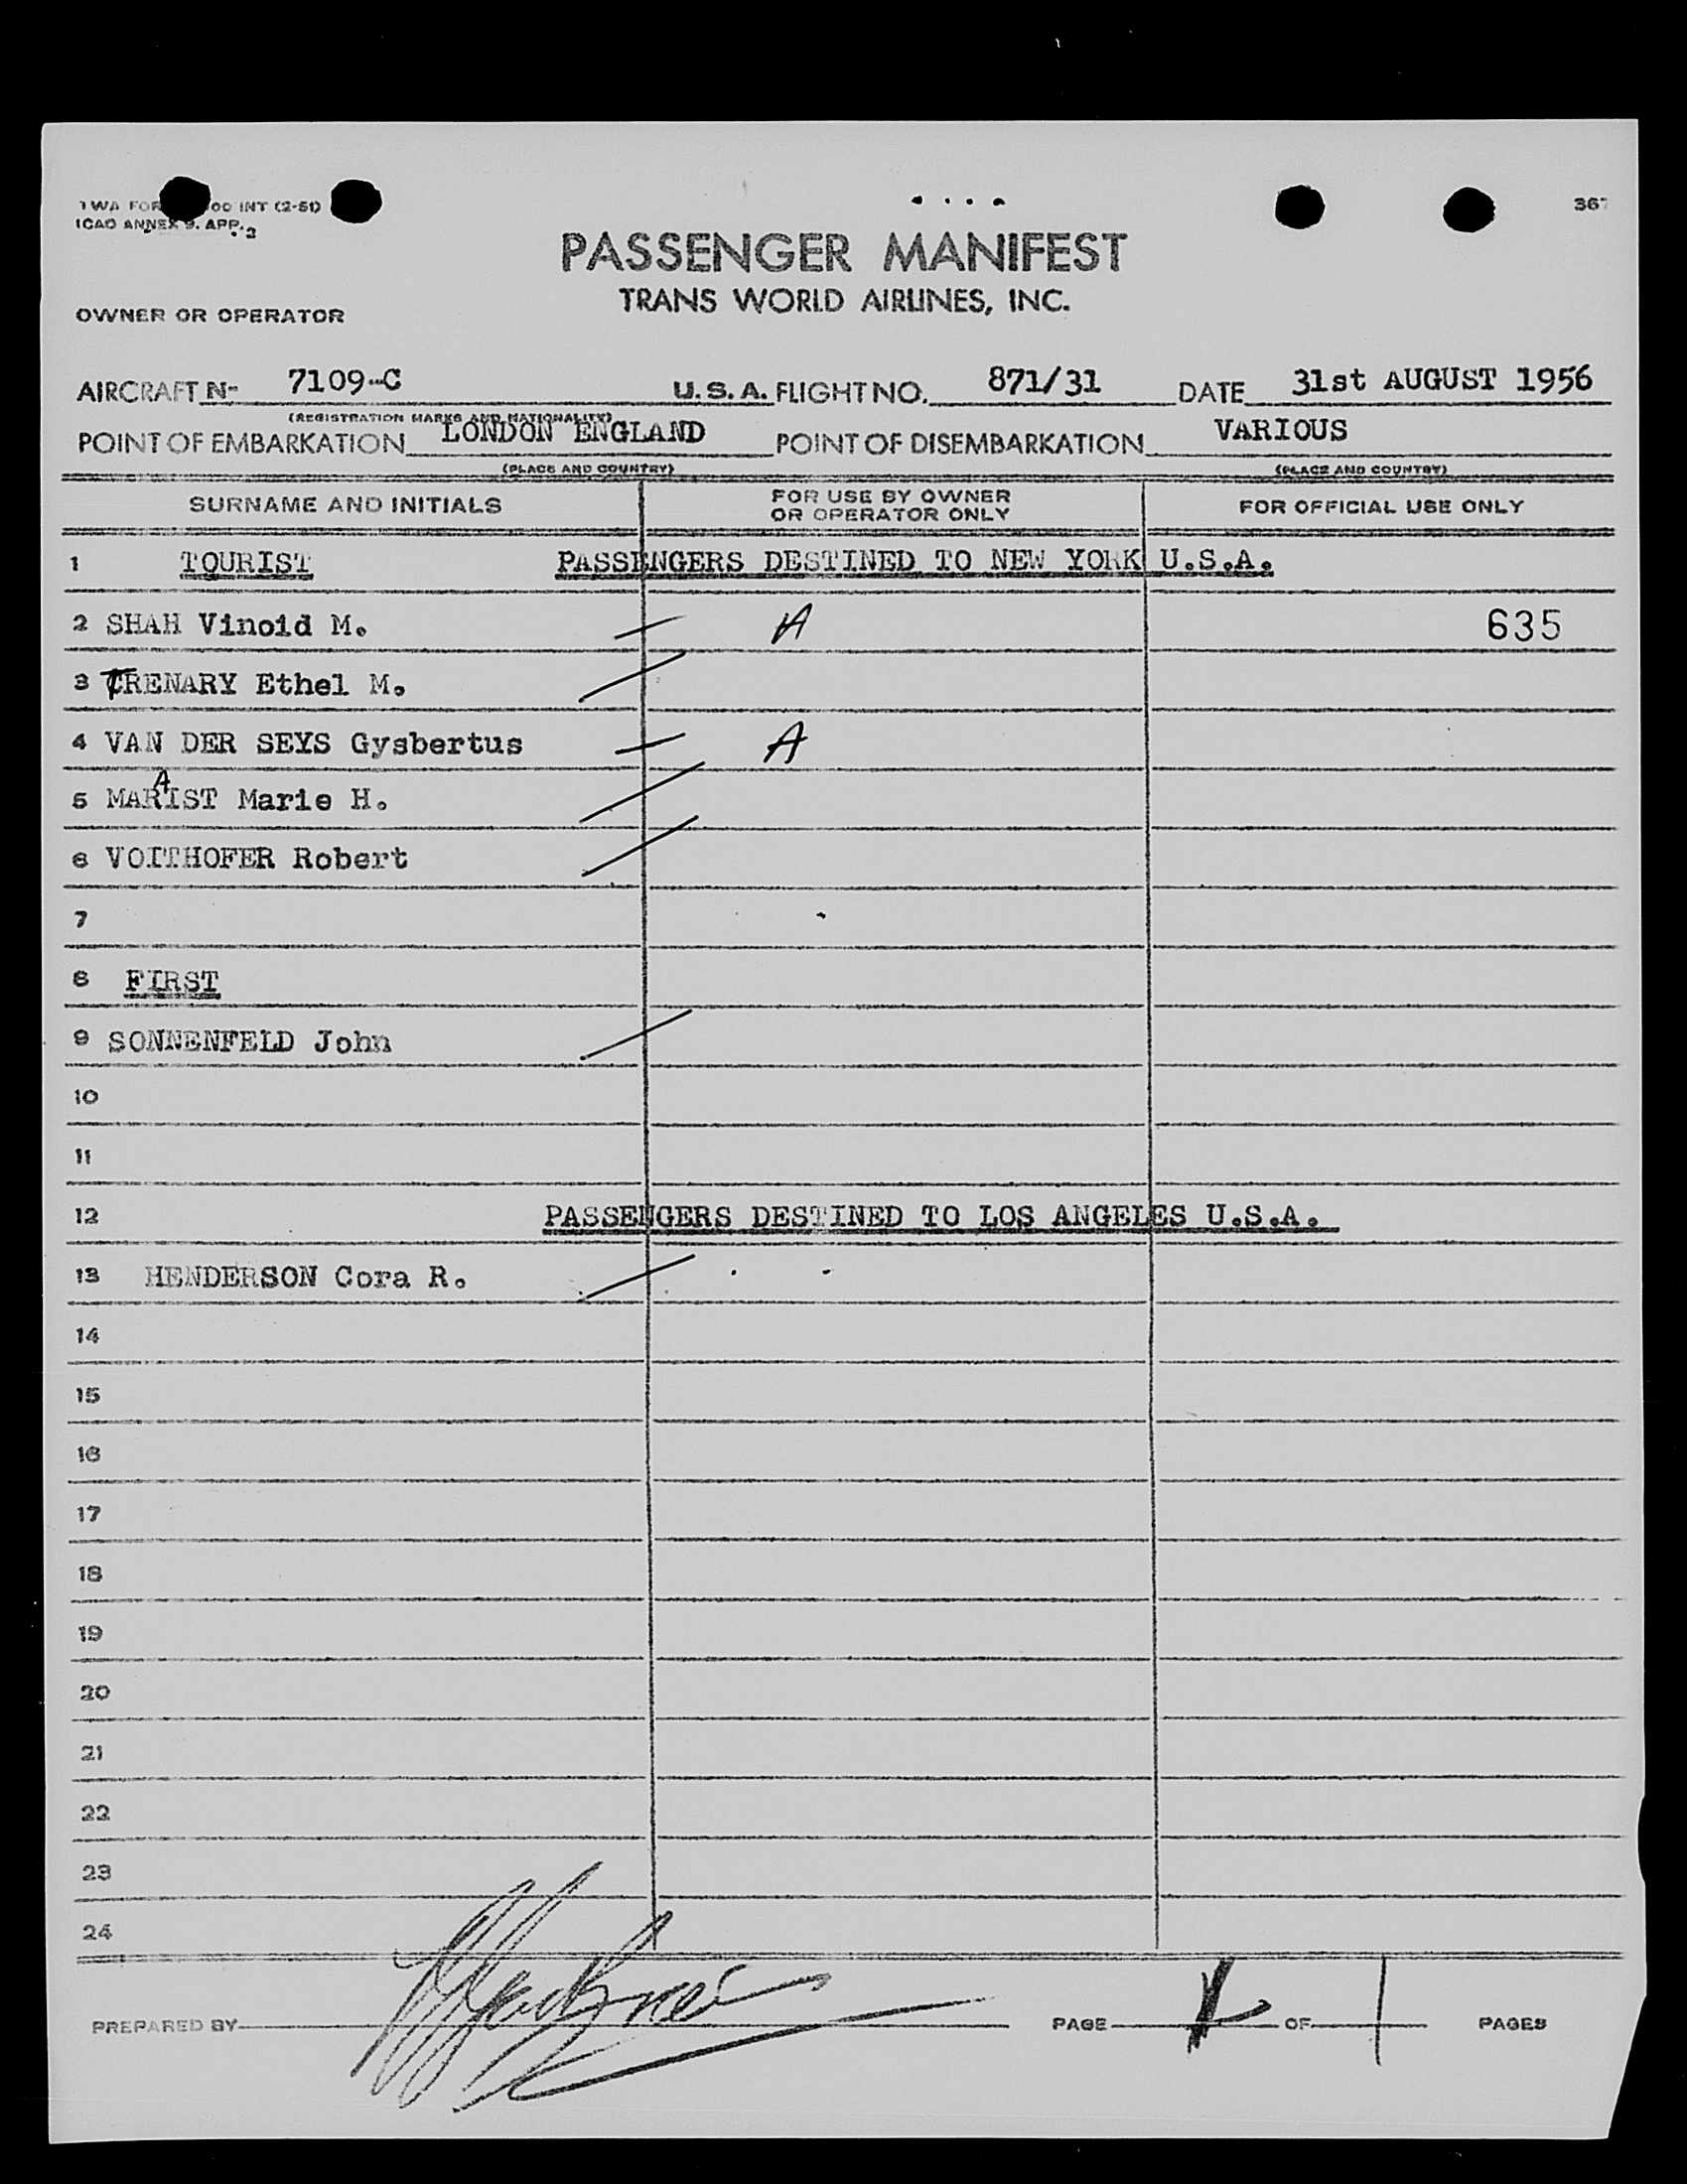 TWA FOR
INT (2-51)
367
ICAO ANNEX 9. APP. 2
PASSENGER MANIFEST
TRANS WORLD AIRLINES, INC.
OWNER OR OPERATOR
AIRCRAFT N- 7109-C U.S.A. FLIGHT NO. 871/31 DATE 31st AUGUST 1956
(REGISTRATION MARKS AND NATIONALITY)
POINT OF EMBARKATION LONDON ENGLAND POINT OF DISEMBARKATION VARIOUS
(PLACE AND COUNTRY) (PLACE AND COUNTRY)
SURNAME AND INITIALS FOR USE BY OWNER OR OPERATOR ONLY FOR OFFICIAL USE ONLY
1 TOURIST PASSENGERS DESTINED TO NEW YORK U.S.A.
2 SHAH Vinoid M. A 635
3 TRENARY Ethel M.
4 VAN DER SEYS Gysbertus A
A
5 MARIST Marie H.
6 VOITHOFER Robert
7
8 FIRST
9 SONNENFELD John
10
11
12 PASSENGERS DESTINED TO LOS ANGELES U.S.A.
13 HENDERSON Cora R.
14
15
16
17
18
19
20
21
22
23
24
PREPARED BY PAGE 1 OF 1 PAGES